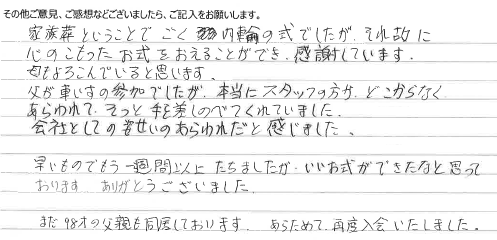 その他ご意見、ご感想などございましたら、ご記入をお願いします。
家族葬ということで ごく 内輪の式でしたが、それ故に
心のこもった お式を おえることができ、感謝しています。
母もよろこんでいると思います。
父が車いすの参加でしたが、本当に スタッフの方が、どこからなく
あらわれて、そっと手を差しのべてくれていました。
会社としての姿せいのあらわれだと感じました、
早いものでもう一週間以上 たちましたが、いいお式ができたなと思って
おります ありがとうございました。
まだ 98才の父親も同居しております。 あらためて、再度入会いたしました。